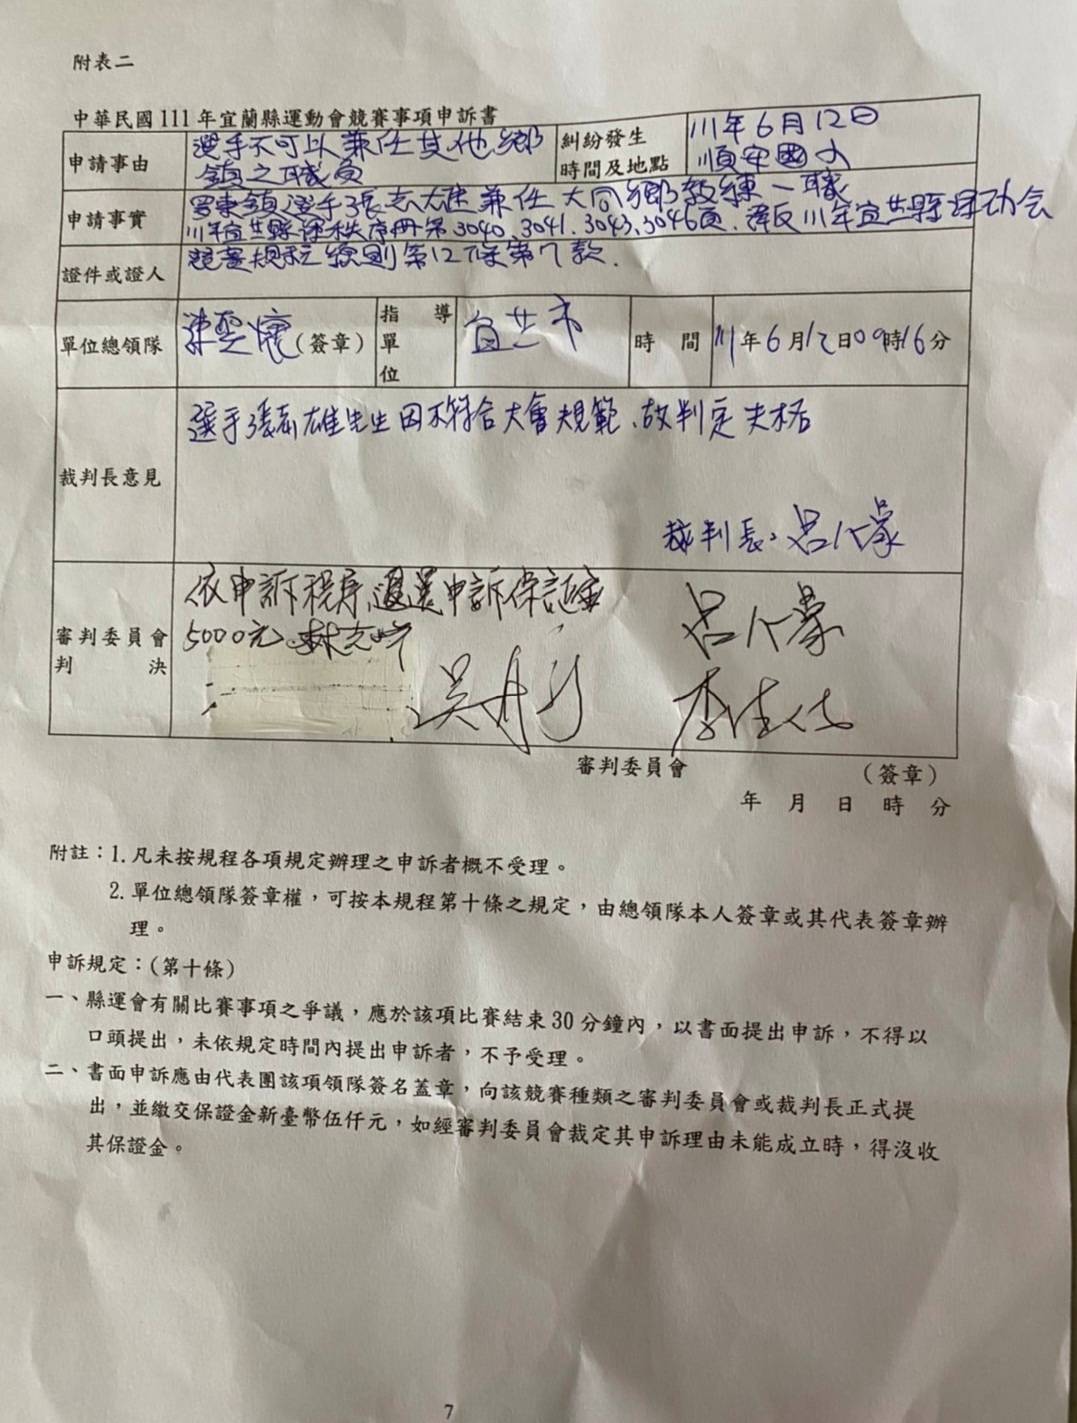 附表二
中華民國111年宜蘭縣運動會競賽事項申訴書
申請事由
選手不可以兼任其他鄉
鎮之職員
糾紛發生
時間及地點
111年6月12日
順安國小
申請事實
羅東鎮選手張志雄兼任大同鄉教練一職
111年宜蘭縣運秩序冊第3040、3041、3043、3046頁.違反111年宜蘭縣運動會
證件或證人
競賽規程總則第12條第7款.
單位總領隊
(簽章)
指導
單
位
宜蘭市
時間
111年6月12日09時16分
裁判長意見
選手張志雄先生因不符合大會規範、故判定失格
裁判長:呂
審判委員會
判決
依申訴程序,退還申訴保證金
5000元
吳
呂
李佳
審判委員會
(簽章)
年 月 日 時 分
附註:1.凡未按規程各項規定辦理之申訴者概不受理。
2.單位總領隊簽章權,可按本規程第十條之規定,由總領隊本人簽章或其代表簽章辦
理。
申訴規定:(第十條)
一、縣運會有關比賽事項之爭議,應於該項比賽結束30分鐘內,以書面提出申訴,不得以
口頭提出,未依規定時間內提出申訴者,不予受理。
二、書面申訴應由代表團該項領隊簽名蓋章,向該競賽種類之審判委員會或裁判長正式提
出,並繳交保證金新臺幣伍仟元,如經審判委員會裁定其申訴理由未能成立時,得沒收
其保證金。
7